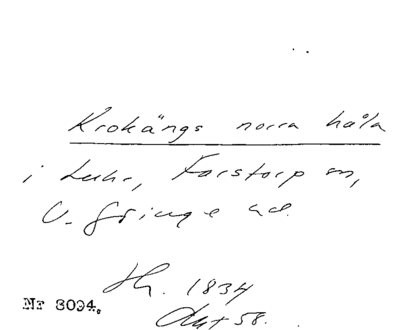 Krokängs norra håla
i Luhr, Farstorp sn,
V. Göinge hd.
Hl. 1834
Akt 58.
Nr 3094.